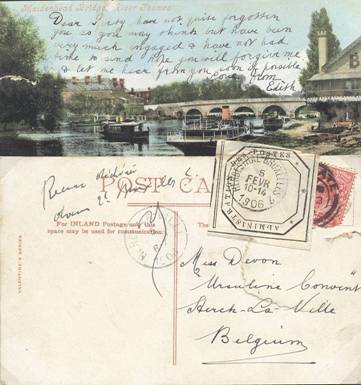 Maidenhead Bridge, River Thames
Dear Sissy have not quite forgotten
you as you may think but have been
very much engaged & have not had
time to send. Hope you will forgive me
& let me hear from you soon as possible
Love from
Edith
POST CA
For INLAND Postage, only this
space may be used for communication.
VALENTINE'S SERIES
ADMINISTRATION DES POSTES
6
FEVR
10-14
1906
Miss Devon
Ursuline Convent
Aerch-La-Ville
Belgium